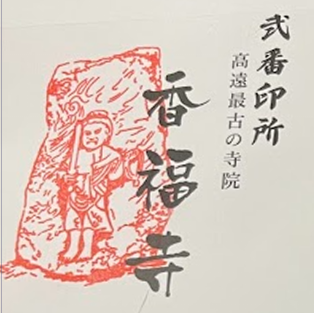 弐番印所
高遠最古の寺院
香福寺